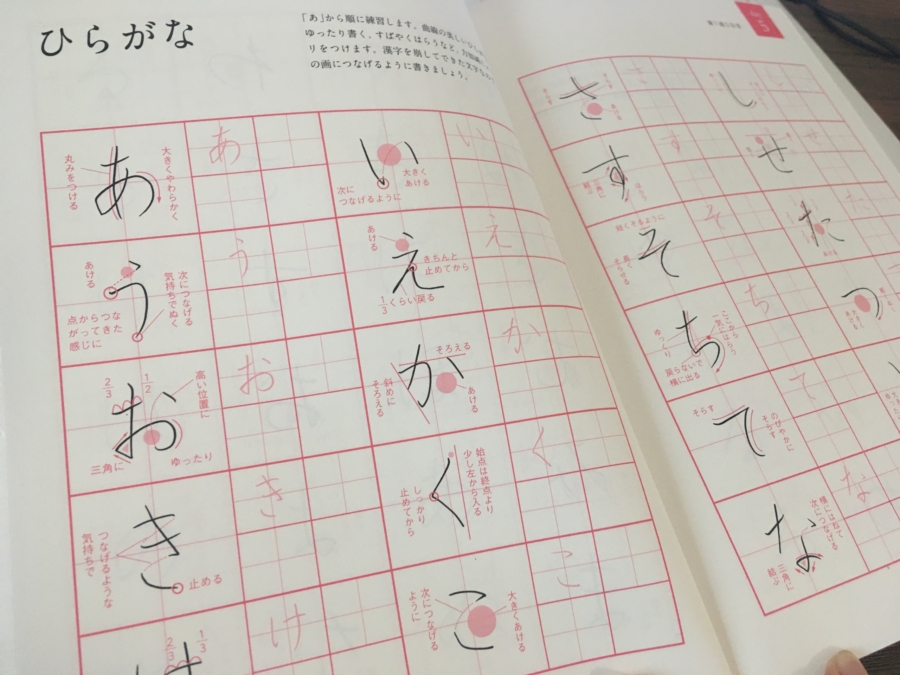 ひらがな
「あ」から順に練習します。曲線の美しいひ
ゆったり書く、すばやくはらうなど、
りをつけます。漢字を崩してできた文字
の画につなげるように書きましょう。
あ
丸みをつける
大きくやわらかく
あ
い
次に
つなげるように
大きく
あける
い
う
あける
点からつな
がってきた
感じに
次につなげる
気持ちでぬく
う
え
あける
きちんと
止めてから
1/3くらい戻る
え
お
2/3
1/2
高い位置に
三角に
ゆったり
お
か
そろえる
斜めに
そろえる
あける
か
き
つなげるような
気持ちで
止める
き
く
始点は終点より
少し左から入る
しっかり
止めてから
く
け
2/3
1/3
け
こ
次につなげる
ように
大きくあける
こ
5
さ
さ
し
し
す
す
せ
せ
そ
短くそるように
そ
た
あける
た
ち
ゆっくり
戻らないで
横に出る
ち
つ
て
そらす
のびやかに
そらす
て
な
横にはねて
次につなげる
三角に
結ぶ
な